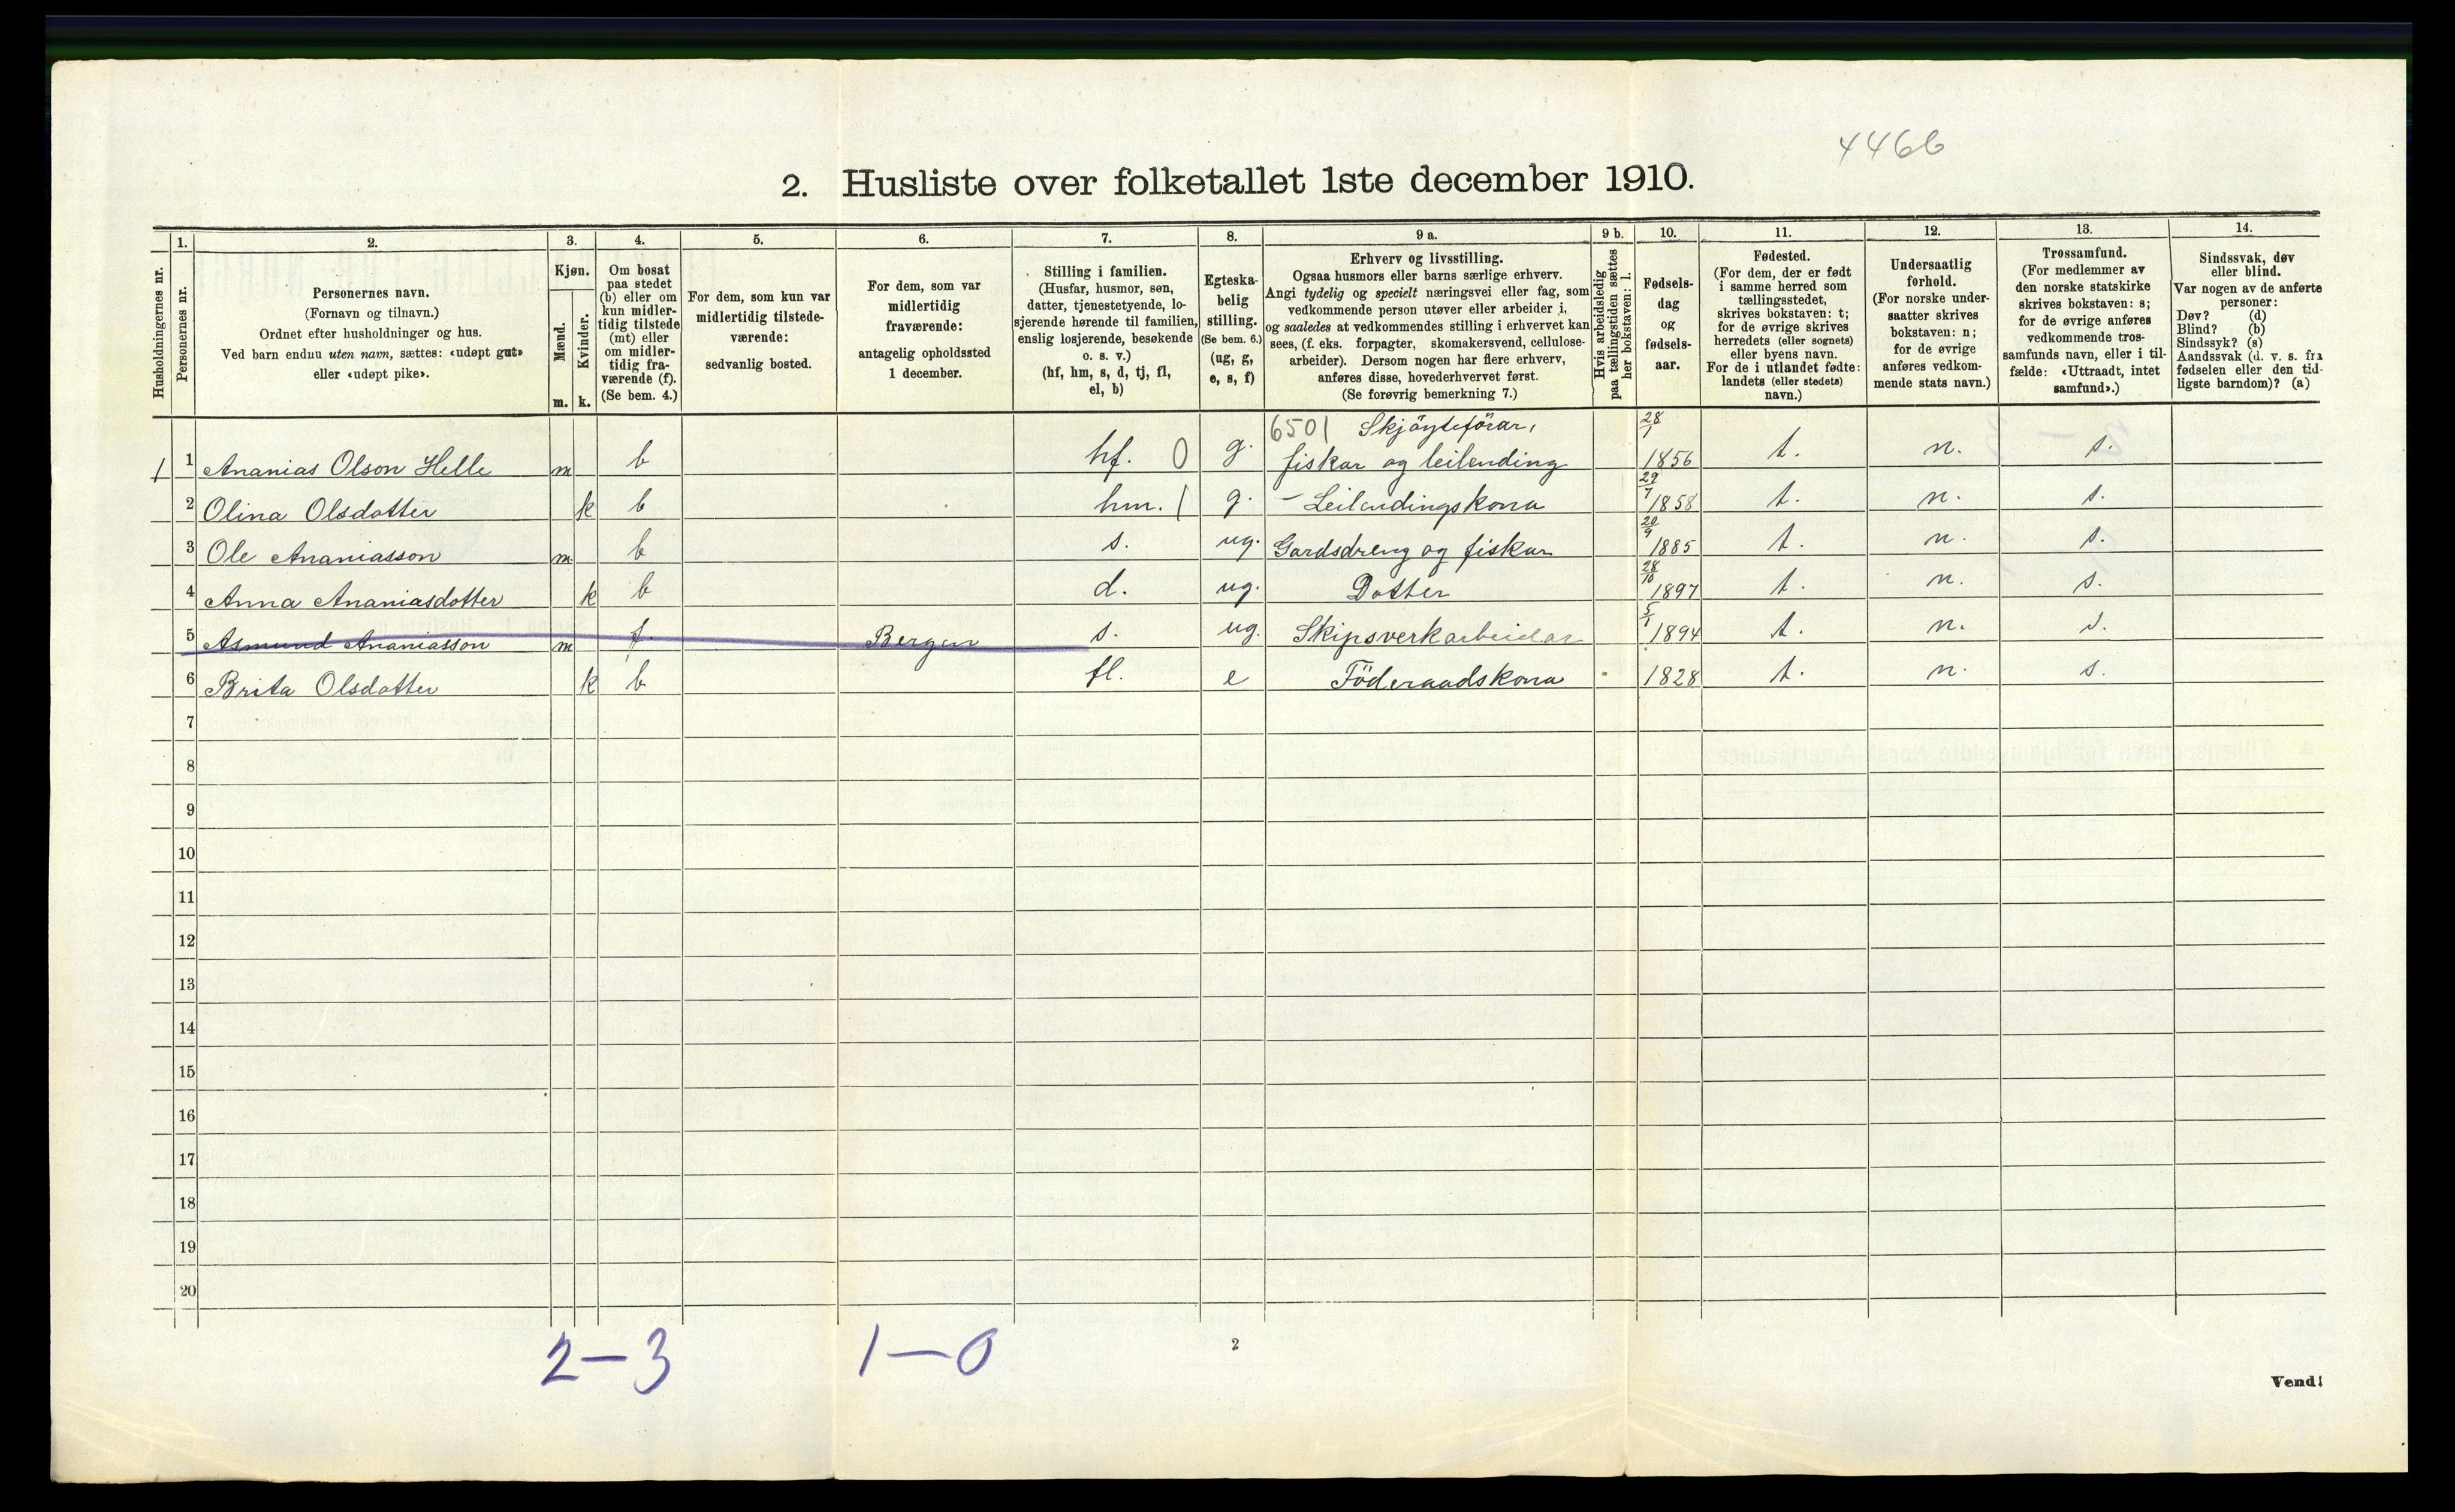 4466
2. Husliste over folketallet 1ste december 1910.
Husholdningernes nr.
1.
Personernes nr.
2.
Personernes navn.
(Fornavn og tilnavn.)
Ordnet efter husholdninger og hus.
Ved barn endnu uten navn, sættes: «udøpt gut»
eller «udøpt pike».
3.
Kjøn.
Mænd.
Kvinder.
m. k.
4.
Om bosat
paa stedet
(b) eller om
kun midler-
tidig tilstede
(mt) eller
om midler-
tidig fra-
værende (f).
(Se bem. 4.)
5.
For dem, som kun var
midlertidig tilstede-
værende:
sedvanlig bosted.
6.
For dem, som var
midlertidig
fraværende:
antagelig opholdssted
1 december.
7.
Stilling i familien.
(Husfar, husmor, søn,
datter, tjenestetyende, lo-
sjerende hørende til familien,
enslig losjerende, besøkende
o. s. v.)
(hf, hm, s, d, tj, fl,
el, b)
8.
Egteska-
belig
stilling.
(Se bem. 6.)
(ug, g,
e, s, f)
9 a.
Erhverv og livsstilling.
Ogsaa husmors eller barns særlige erhverv.
Angi tydelig og specielt næringsvei eller fag, som
vedkommende person utøver eller arbeider i,
og saaledes at vedkommendes stilling i erhvervet kan
sees, (f. eks. forpagter, skomakersvend, cellulose-
arbeider). Dersom nogen har flere erhverv,
anføres disse, hovederhvervet først.
(Se forøvrig bemerkning 7.)
9 b.
Hvis arbeidsledig
paa tællingstiden sættes
her bokstaven: l.
10.
Fødsels-
dag
og
fødsels-
aar.
11.
Fødested.
(For dem, der er født
i samme herred som
tællingsstedet,
skrives bokstaven: t;
for de øvrige skrives
herredets (eller sognets)
eller byens navn.
For de i utlandet fødte:
landets (eller stedets)
navn.)
12.
Undersaatlig
forhold.
(For norske under-
saatter skrives
bokstaven: n;
for de øvrige
anføres vedkom-
mende stats navn.)
13.
Trossamfund.
(For medlemmer av
den norske statskirke
skrives bokstaven: s;
for de øvrige anføres
vedkommende tros-
samfunds navn, eller i til-
fælde: «Uttraadt, intet
samfund».)
14.
Sindssvak, døv
eller blind.
Var nogen av de anførte
personer:
Døv? (d)
Blind? (b)
Sindssyk? (s)
Aandssvak (d. v. s. fra
fødselen eller den tid-
ligste barndom)? (a)
6501 Skjöyteförar, 28/1
1 1 Ananias Olson Helle m b hf. 0 g. fiskar og leilending 1856 t. n. s.
2 Olina Olsdotter k b hm. 1 g. - Leilendingskona 29/7 1858 t. n. s.
3 Ole Ananiasson m b s. ug. Gardsdreng og fiskar 20/9 1885 t. n. s.
4 Anna Ananiasdotter k b d. ug. Dotter 28/10 1897 t. n. s.
5 Asmund Ananiasson m f. Bergen s. ug. Skipsverkarbeidar 5/1 1894 t. n. s.
6 Brita Olsdotter k b fl. e Föderaadskona 1828 t. n. s.
7
8
9
10
11
12
13
14
15
16
17
18
19
20
2-3 1-0
2
Vend!